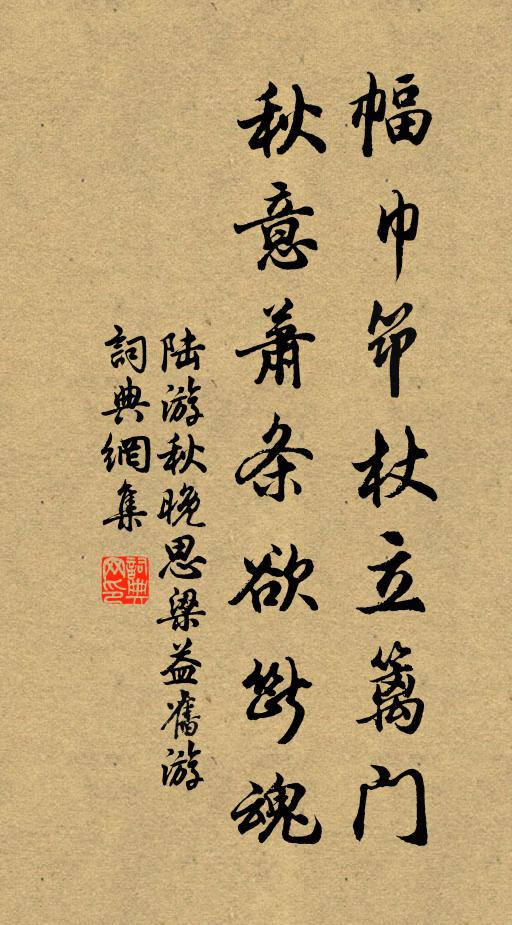 幅巾筇杖立篱門
秋意蕭条欲断魂
陆游秋晚思梁益舊游
詞典網集
詞典网印